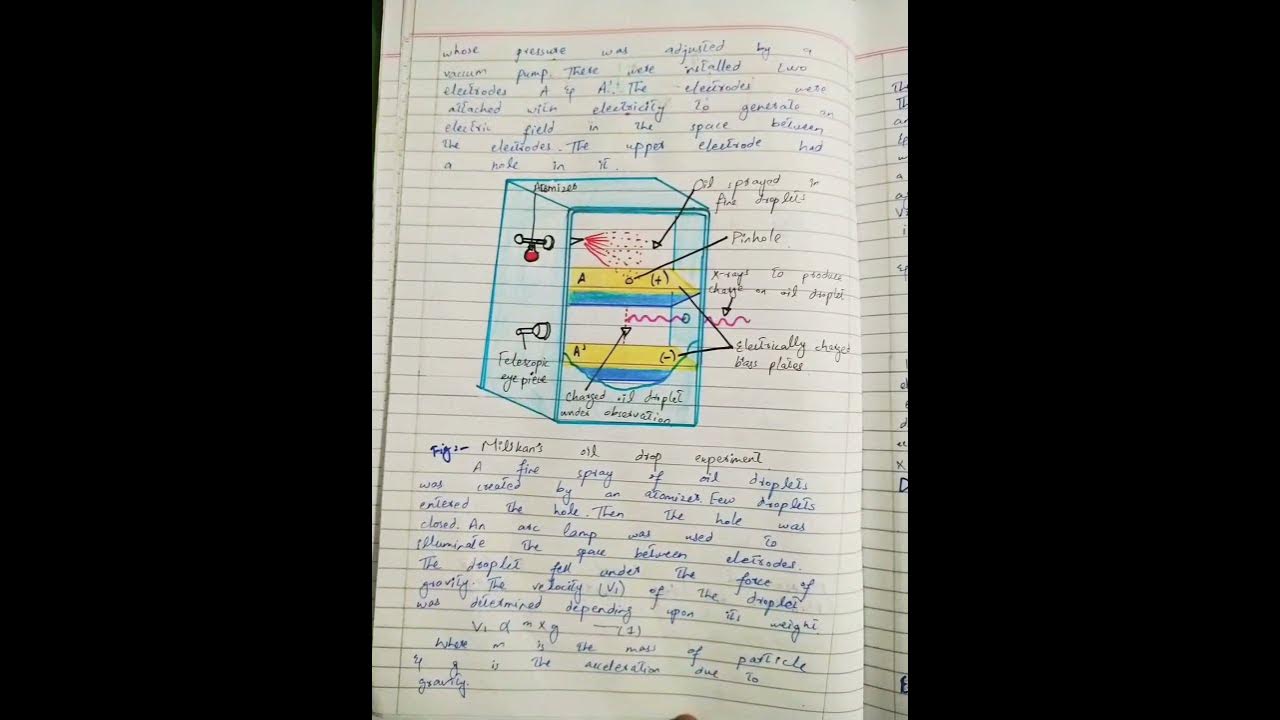 whose pressure was adjusted by a
vacuum pump. There were installed two
electrodes A & A'. The electrodes were
attached with electricity to generate an
electric field in the space between
the electrodes. The upper electrode had
a hole in it.
Atomizer
Oil sprayed in
fine droplets
Pinhole
A (+)
X-rays to produce
charge on oil droplet
A' (-)
Electrically charged
bass plates
Telescopic
eye piece
Charged oil droplet
under observation
Fig:- Milikan's oil drop experiment.
A fine spray of oil droplets
was created by an atomizer. Few droplets
entered the hole. Then the hole was
closed. An arc lamp was used to
illuminate the space between eletrodes.
The droplet fell under the force of
gravity. The velocity (V₁) of the droplet
was determined depending upon its weight.
V₁ α m x g —(1)
where m is the mass of particle
& g is the acceleration due to
gravity.